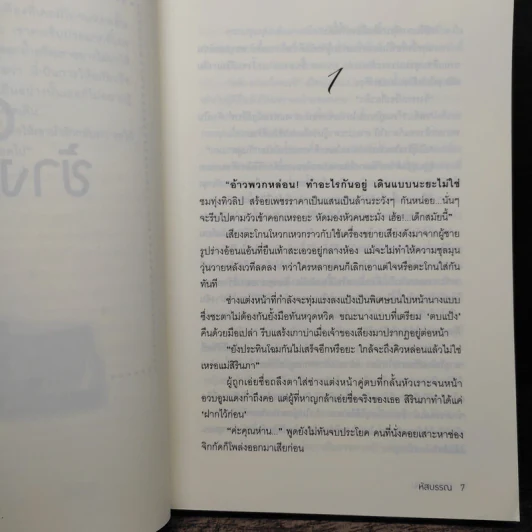 ข้าง
1
"อ้าวพวกหล่อน! ทำอะไรกันอยู่ เดินแบบนะยะไม่ใช่
ชมทุ่งทิวลิป สร้อยเพชรราคาเป็นแสนเป็นล้านระวังๆ กันหน่อย...นั่นๆ
จะรีบไปตามวัวเข้าคอกเหรอยะ หัดมองหัวคนซะมั่ง เฮ้อ!...เด็กสมัยนี้"
เสียงตะโกนโหวกเหวกราวกับใช้เครื่องขยายเสียงดังมาจากผู้ชาย
รูปร่างอ้อนแอ้นที่ยืนเท้าสะเอวอยู่กลางห้อง แม้จะไม่ทำให้ความชุลมุน
วุ่นวายหลังเวทีลดลง ทว่าใครหลายคนก็เลิกเอาแต่ใจหรือตะโกนใส่กัน
ทันที
ช่างแต่งหน้าที่กำลังจะทุ่มแรงลงแป้งเป็นพิเศษบนใบหน้านางแบบ
ซึ่งชะตาไม่ต้องกันยั้งมือทันหวุดหวิด ขณะนางแบบที่เตรียม 'ตบแป้ง'
คืนด้วยมือเปล่า รีบแสร้งเกาบ่าเมื่อเจ้าของเสียงมาปรากฏอยู่ต่อหน้า
"ยังประทินโฉมกันไม่เสร็จอีกหรือยะ ใกล้จะถึงคิวหล่อนแล้วไม่ใช่
เหรอแม่สิรินภา"
ผู้ถูกเอ่ยชื่อถลึงตาใส่ช่างแต่งหน้าคู่ตบที่กลั้นหัวเราะจนหน้า
อวบอูมแดงก่ำถึงคอ แต่ผู้ที่หาญกล้าเอ่ยชื่อจริงของเธอ สิรินภาทำได้แค่
'ฝากไว้ก่อน'
"ค่ะคุณห่าน..." พูดยังไม่ทันจบประโยค คนที่นั่งคอยเสาะหาช่อง
จิกกัดก็โพล่งออกมาเสียก่อน
หัสบรรณ 7